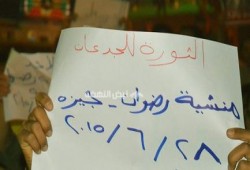 الثورة للجدعان
منشية رضوان - جيزه
٢٠١٥/٦/٢٨